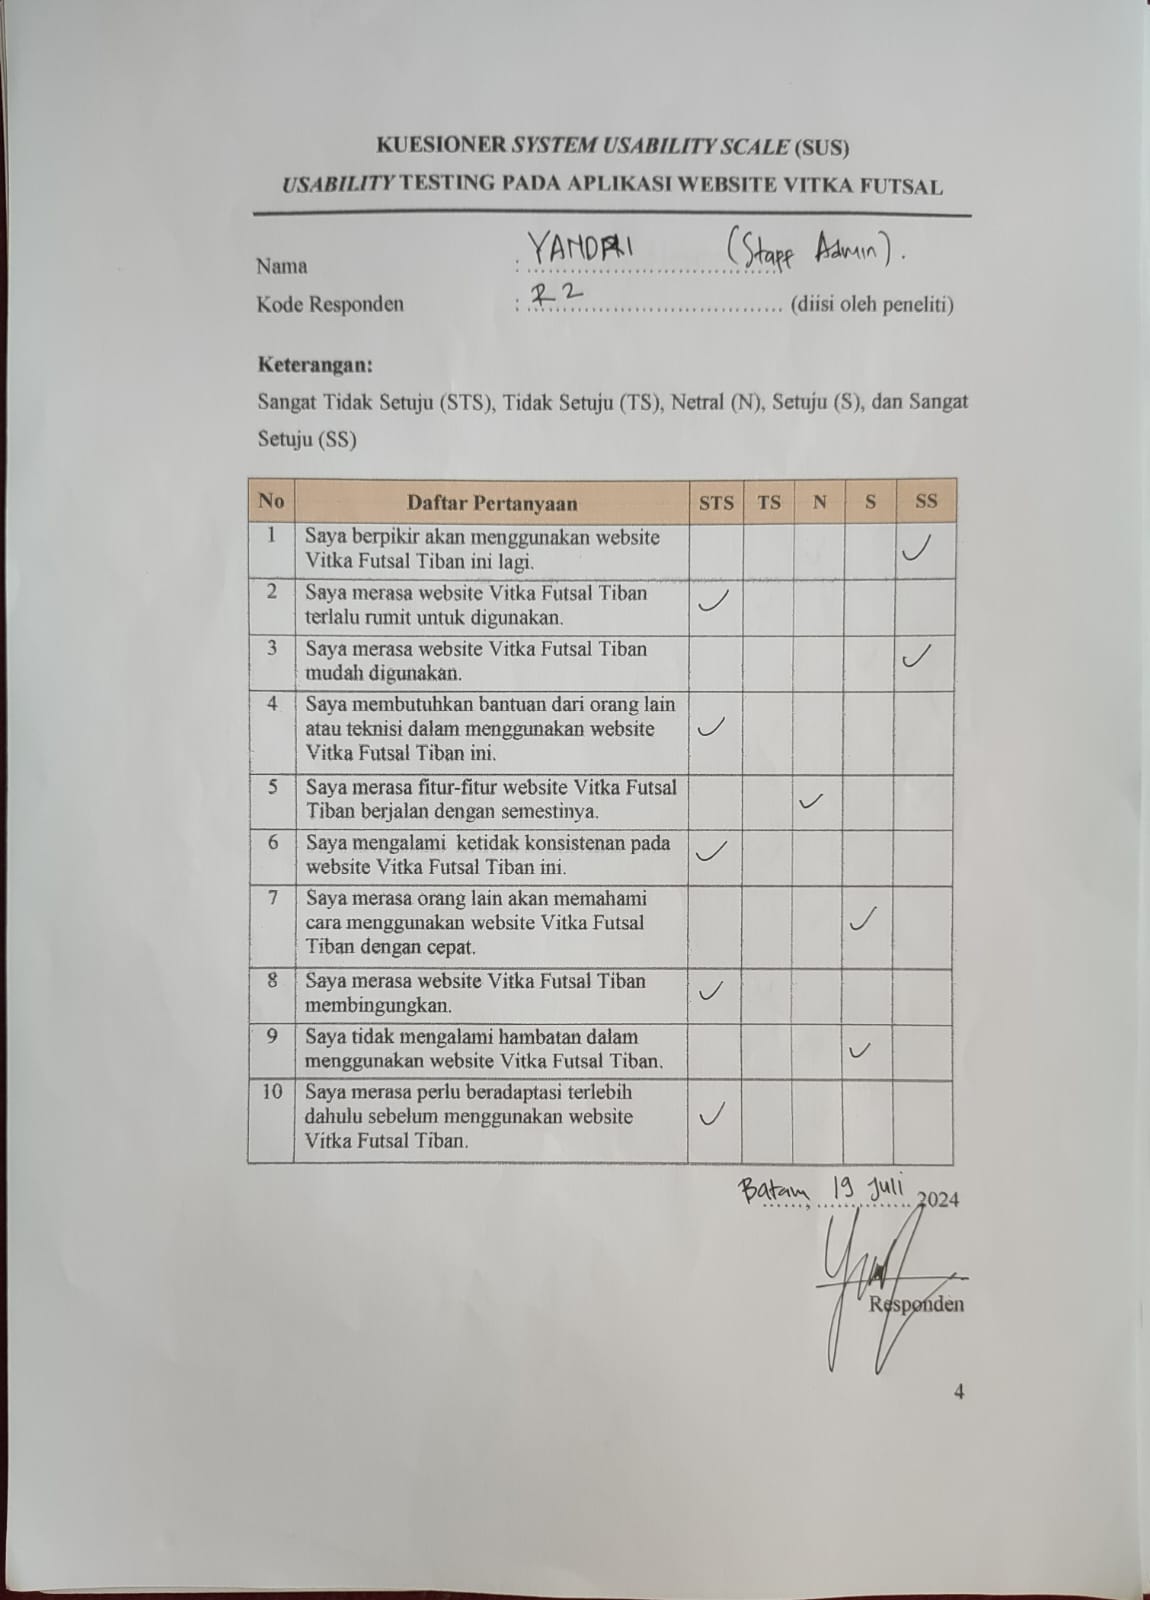 KUESIONER SYSTEM USABILITY SCALE (SUS)
USABILITY TESTING PADA APLIKASI WEBSITE VITKA FUTSAL
Nama : YANDRI (Staff Admin).
Kode Responden : R2 (diisi oleh peneliti)
Keterangan:
Sangat Tidak Setuju (STS), Tidak Setuju (TS), Netral (N), Setuju (S), dan Sangat
Setuju (SS)
No Daftar Pertanyaan STS TS N S SS
1 Saya berpikir akan menggunakan website
Vitka Futsal Tiban ini lagi. ✓
2 Saya merasa website Vitka Futsal Tiban
terlalu rumit untuk digunakan. ✓
3 Saya merasa website Vitka Futsal Tiban
mudah digunakan. ✓
4 Saya membutuhkan bantuan dari orang lain
atau teknisi dalam menggunakan website ✓
Vitka Futsal Tiban ini.
5 Saya merasa fitur-fitur website Vitka Futsal
Tiban berjalan dengan semestinya. ✓
6 Saya mengalami ketidak konsistenan pada
website Vitka Futsal Tiban ini. ✓
7 Saya merasa orang lain akan memahami
cara menggunakan website Vitka Futsal ✓
Tiban dengan cepat.
8 Saya merasa website Vitka Futsal Tiban
membingungkan. ✓
9 Saya tidak mengalami hambatan dalam
menggunakan website Vitka Futsal Tiban. ✓
10 Saya merasa perlu beradaptasi terlebih
dahulu sebelum menggunakan website ✓
Vitka Futsal Tiban.
Batam, 19 Juli 2024
Responden
4